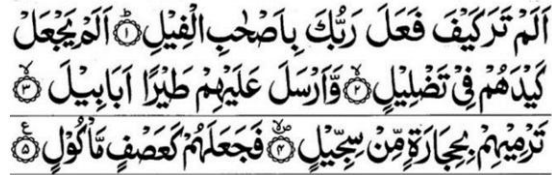 اَلَمْ تَرَ كَيْفَ فَعَلَ رَبُّكَ بِاَصْحٰبِ الْفِيْلِ ۝١ؕ اَلَمْ يَجْعَلْ
كَيْدَهُمْ فِيْ تَضْلِيْلٍ ۝٢ۙ وَّاَرْسَلَ عَلَيْهِمْ طَيْرًا اَبَابِيْلَ ۝٣ۙ
تَرْمِيْهِمْ بِحِجَارَةٍ مِّنْ سِجِّيْلٍ ۝٤۪ۙ فَجَعَلَهُمْ كَعَصْفٍ مَّاْكُوْلٍ ۝٥ع